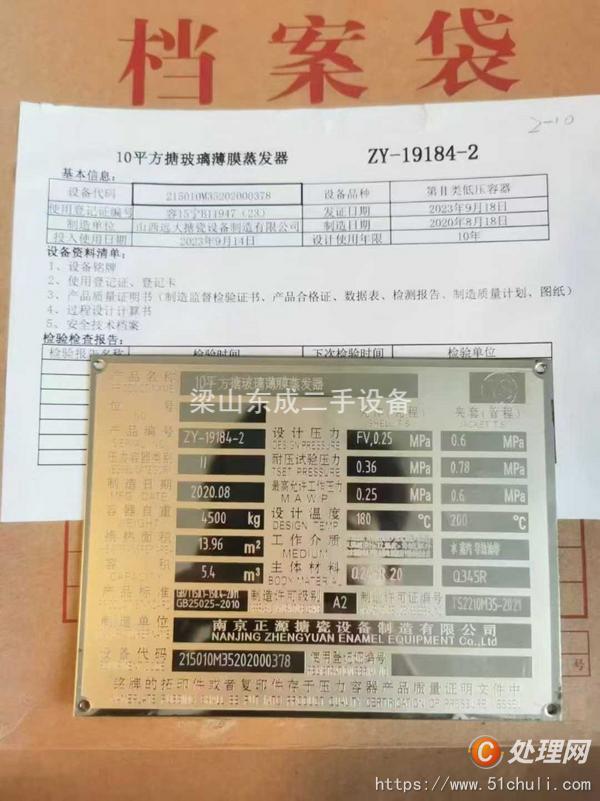 档案袋
2-10
10平方搪玻璃薄膜蒸发器 ZY-19184-2
基本信息:
设备代码 215010M35202000378 设备品种 第II类低压容器
使用登记证编号 容15宁B11947(23) 发证日期 2023年9月18日
制造单位 山西远大搪瓷设备制造有限公司 制造日期 2020年8月18日
投入使用日期 2023年9月14日 设计使用年限 10年
设备资料清单:
1、设备铭牌
2、使用登记证、登记卡
3、产品质量证明书(制造监督检验证书、产品合格证、数据表、检测报告、制造质量计划、图纸)
4、过程设计计算书
5、安全技术档案
检验检查报告:
检验报告名称 检验时间 下次检验时间 检验单位
产品名称 10平方搪玻璃薄膜蒸发器
梁山东成二手设备
位号 夹套(管程)
产品编号 ZY-19184-2 设计压力 FV,0.25 MPa 0.6 MPa
DESIGN PRESSURE
压力容器类别 II 耐压试验压力 0.36 MPa 0.78 MPa
TSET PRESSURE
制造日期 2020.08 最高允许工作压力 0.25 MPa 0.6 MPa
MFG DATE M.A.W.P
容器自重 4500 kg 设计温度 180 ℃ 200 ℃
WEIGHT DESIGN TEMP
换热面积 13.96 m² 工作介质
MEDIUM
容积 5.4 m³ 主体材料 Q345R
CAPACITY BODY MATERIAL
产品标准 GB25025-2010 制造许可级别 A2 制造许可证编号 TS2210M35-2021
制造单位 南京正源搪瓷设备制造有限公司
NANJING ZHENGYUAN ENAMEL EQUIPMENT Co.,Ltd
设备代码 215010M35202000378 使用登记证编号
铭牌的拓印件或者复印件存于压力容器产品质量证明文件中
C 处理网
https://www.51chuli.com